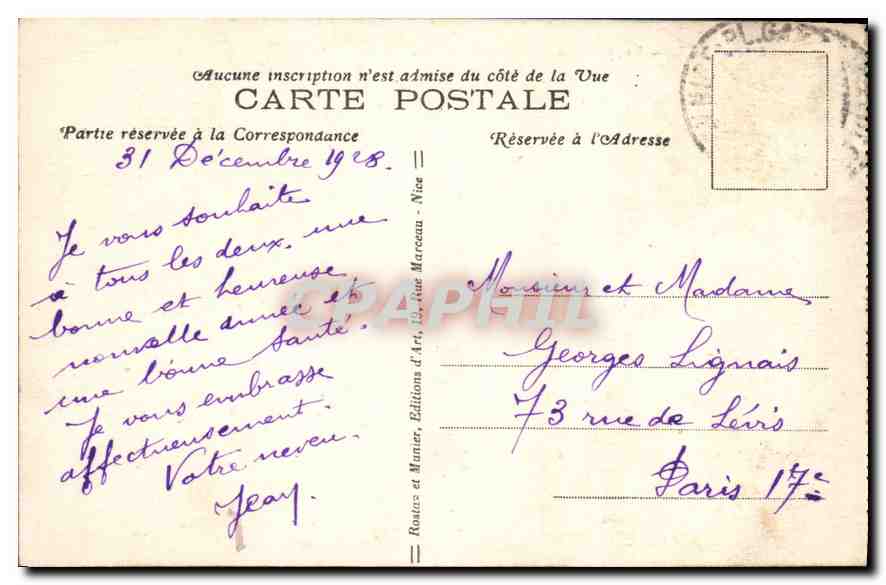 Aucune inscription n'est admise du côté de la Vue
CARTE POSTALE
Partie réservée à la Correspondance
Réservée à l'Adresse
31 Décembre 1928.
Je vous souhaite
à tous les deux, une
bonne et heureuse
nouvelle année et
une bonne santé.
Je vous embrasse
affectueusement.
Votre neveu.
Jean.
Rostan et Munier, Editions d'Art, 19, Rue Marceau - Nice
Monsieur et Madame
Georges Lignais
73 rue de Lévis
Paris 17e
CPAPHIL
PL.